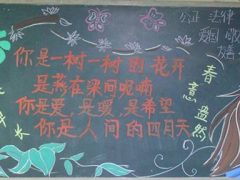 你是一树一树的花开
是燕在梁间呢喃
你是爱，是暖，是希望
你是人间的四月天
春意盎然
公正 法律